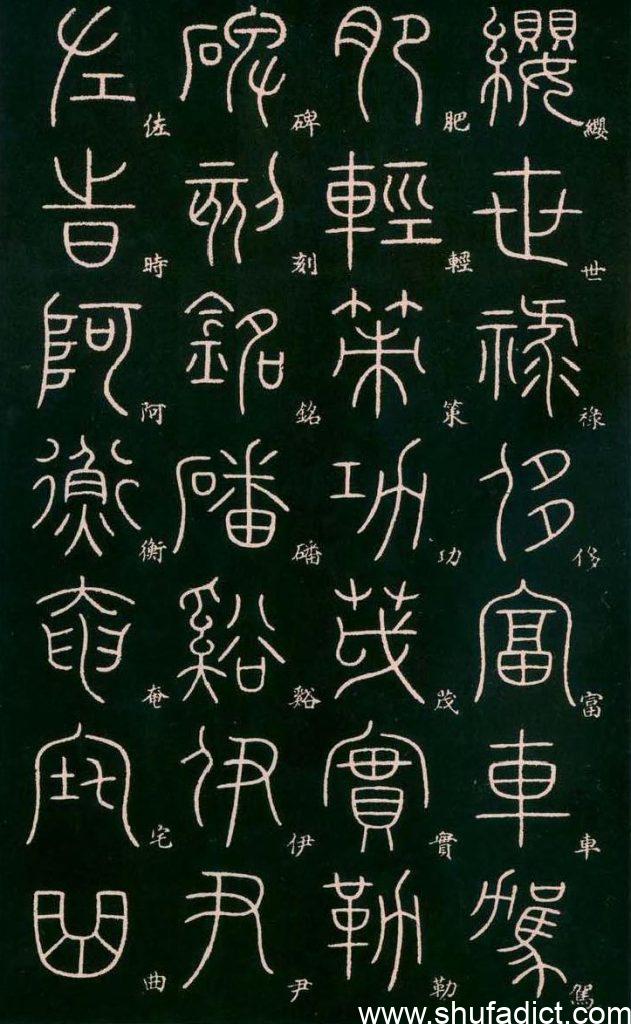 纓世祿侈富車駕
肥輕策功茂實勒
碑刻銘磻谿伊尹
佐時阿衡奄宅曲
www.shufadict.com